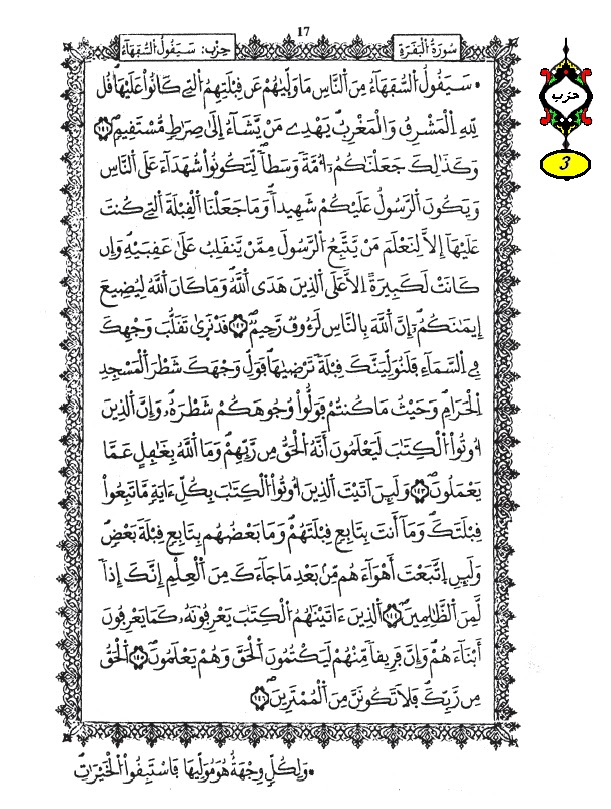 17
سُورَةُ الْبَقَرَةِ
حِزْبُ: سَيَقُولُ السُّفَهَاءُ
سَيَقُولُ السُّفَهَاءُ مِنَ النَّاسِ مَا وَلّٰيهُمْ عَن قِبْلَتِهِمُ الَّتِي كَانُواْ عَلَيْهَا قُل
لِّلهِ الْمَشْرِقُ وَالْمَغْرِبُ يَهْدِے مَنْ يَّشَآءُ اِلَىٰ صِرَٰطٍ مُّسْتَقِيمٍ ١٤١
وَكَذَٰلِكَ جَعَلْنَٰكُمُۥٓ أُمَّةً وَسَطاً لِّتَكُونُواْ شُهَدَآءَ عَلَى النَّاسِ
وَيَكُونَ الرَّسُولُ عَلَيْكُمْ شَهِيداً وَمَا جَعَلْنَا الْقِبْلَةَ الَّتِي كُنتَ
عَلَيْهَآ إِلَّا لِنَعْلَمَ مَنْ يَّتَّبِعُ الرَّسُولَ مِمَّنْ يَّنقَلِبُ عَلَىٰ عَقِبَيْهِ وَإِن
كَانَتْ لَكَبِيرَةً اِلَّا عَلَى الَّذِينَ هَدَى اللَّهُ وَمَا كَانَ اللَّهُ لِيُضِيعَ
إِيمَٰنَكُمُۥٓ إِنَّ اللَّهَ بِالنَّاسِ لَرَءُوفٌ رَّحِيمٌ ١٤٢ قَدْ نَرَىٰ تَقَلُّبَ وَجْهِكَ
فِي السَّمَآءِ فَلَنُوَلِّيَنَّكَ قِبْلَةً تَرْضَىٰهَا فَوَلِّ وَجْهَكَ شَطْرَ الْمَسْجِدِ
الْحَرَامِ وَحَيْثُ مَا كُنتُمْ فَوَلُّواْ وُجُوهَكُمْ شَطْرَهُۥ وَإِنَّ الَّذِينَ
أُوتُواْ الْكِتَٰبَ لَيَعْلَمُونَ أَنَّهُ الْحَقُّ مِن رَّبِّهِمْ وَمَا اللَّهُ بِغَٰفِلٍ عَمَّا
يَعْمَلُونَ ١٤٣ وَلَئِنَ اَتَيْتَ الَّذِينَ أُوتُواْ الْكِتَٰبَ بِكُلِّ ءَايَةٍ مَّا تَبِعُواْ
قِبْلَتَكَ وَمَآ أَنتَ بِتَابِعٍ قِبْلَتَهُمْ وَمَا بَعْضُهُم بِتَابِعٍ قِبْلَةَ بَعْضٍ
وَلَئِنِ اِتَّبَعْتَ أَهْوَآءَهُم مِّنۢ بَعْدِ مَا جَآءَكَ مِنَ الْعِلْمِ إِنَّكَ إِذاً
لَّمِنَ الظَّٰلِمِينَ ١٤٤ الَّذِينَ ءَاتَيْنَٰهُمُ الْكِتَٰبَ يَعْرِفُونَهُۥ كَمَا يَعْرِفُونَ
أَبْنَآءَهُمْ وَإِنَّ فَرِيقاً مِّنْهُمْ لَيَكْتُمُونَ الْحَقَّ وَهُمْ يَعْلَمُونَ ١٤٥ اَلْحَقُّ
مِن رَّبِّكَ فَلَا تَكُونَنَّ مِنَ الْمُمْتَرِينَ ١٤٦
وَلِكُلٍّ وِجْهَةٌ هُوَ مُوَلِّيهَا فَاسْتَبِقُواْ الْخَيْرَٰتِ
حزب
3